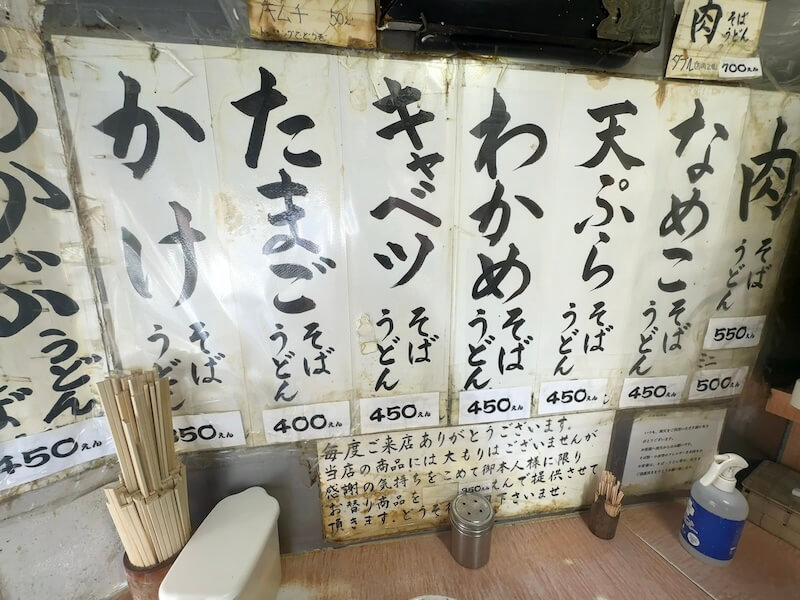 キムチ 50えん
肉 そば うどん
ダブル 700えん
肉 そば うどん
550えん
ミニ 500えん
なめこ そば うどん
450えん
天ぷら そば うどん
450えん
わかめ そば うどん
450えん
キャベツ そば うどん
450えん
たまご そば うどん
400えん
かけ そば うどん
350えん
うどん
450えん
毎度ご来店ありがとうございます。
当店の商品には大もりはございませんが
感謝の気持をこめて御本人様に限り
お替り商品を 350えんで提供させて
頂きます。どうぞ 下さいませ。